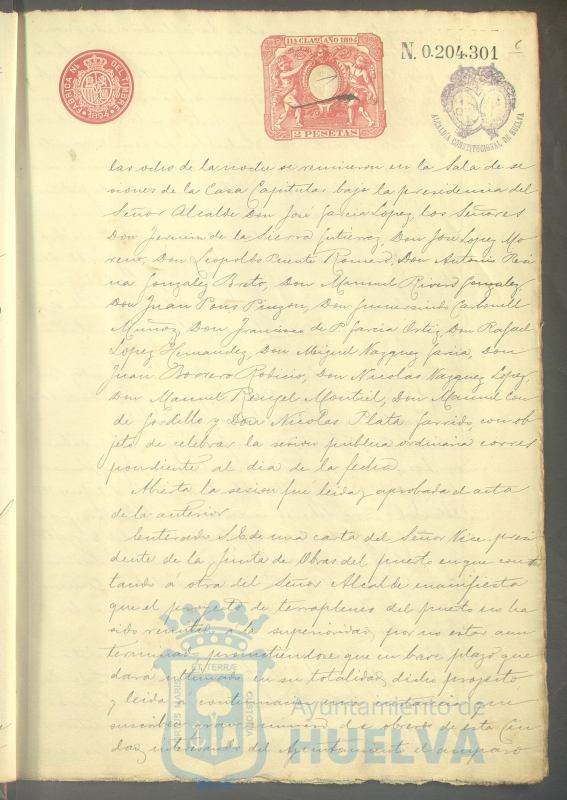 11ª CLASE AÑO 1894
2 PESETAS
FABRICA Nal. DEL TIMBRE
1894
N. 0.204.301
6
ALCALDIA CONSTITUCIONAL DE HUELVA
las ocho de la noche se reunieron en la Sala de se
siones de la Casa Capitular bajo la presidencia del
Señor Alcalde Don José Garcia Lopez, los Señores
Don Jernim de la Sierra Gutierrez, Don José Lopez Mo
reno, Don Leopoldo Puente Romero, Don Antonio
Gonzalez Don Manuel Rivero Gonzalez,
Don Juan Pons Pinzon, Don Gumersindo Carbonell
Muñoz, Don Francisco de P. Garcia Ortiz, Don Rafael
Lopez Hernandez, Don Miguel Vazquez Garcia, Don
Juan Borrero Don Nicolas Vazquez Lopez,
Don Manuel Rengel Montiel, Don Manuel Con
de Gordillo y Don Nicolas Plata Garrido, con ob
jeto de celebrar la sesion publica ordinaria corres
pondiente al dia de la fecha.
Abierta la sesion fué leida y aprobada el acta
de la anterior
Enterado S.E. de una carta del Señor Vice-presi
dente de la Junta de Obras del puerto en que cons
tando á otra del Señor Alcalde manifiesta
que el proyecto de terraplenes del puerto no ha
sido remitido a la superioridad, por no estar aun
terminado, prometiendose que en breve plazo que
dara ultimado en su totalidad dicho proyecto
y leida á continuacion una
suscribe gran numero de obreros de esta Ciu
dad, interesando del Ayuntamiento el amparo
PORTUS MARIS ET TERRÆ CUSTODIA
Ayuntamiento de
HUELVA